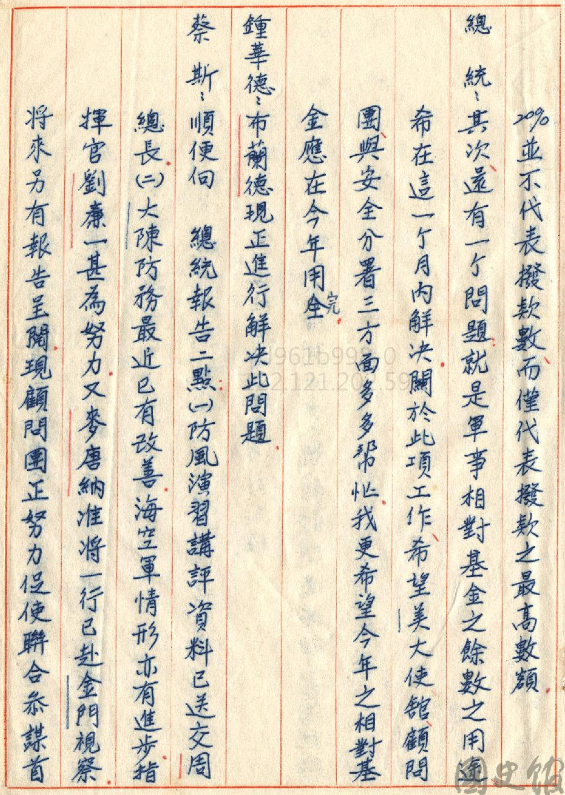 20%並不代表撥款數而僅代表撥款之最高數額
總統:其次還有一个問題就是軍事相對基金之餘數之用途
希在這一个月內解決關於此項工作希望美大使館顧問
團與安全分署三方面多多幫忙我更希望今年之相對基
金應在今年用完
鍾華德:布蘭德現正進行解決此問題
蔡斯:順便向 總統報告二點(一)防風演習講評資料已送交周
總長(二)大陳防務最近已有改善海空軍情形亦有進步指
揮官劉廉一甚為努力又麥唐納准將一行已赴金門視察
將來另有報告呈閱現顧問團正努力促使聯合參謀首
國史館